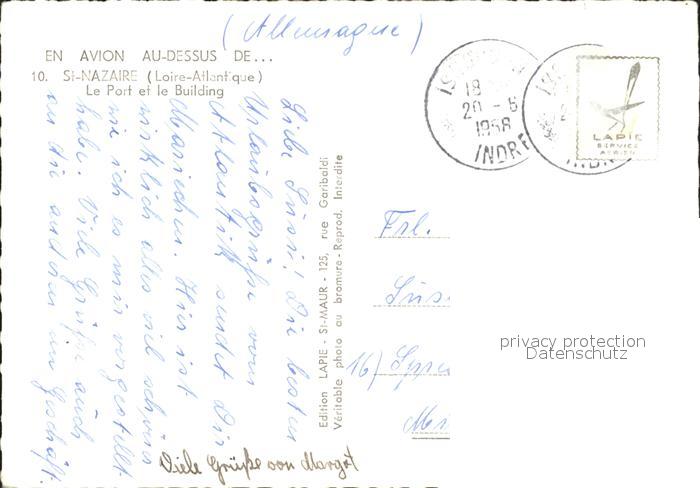 (Allemagne)
EN AVION AU-DESSUS DE...
10. St-NAZAIRE (Loire-Atlantique)
Le Port et le Building
18
20 - 5
1958
INDRE
LAPIE
SERVICE
AERIEN
Liebe Susi! Die besten
Urlaubsgrüße vom
Atlantik sendet Dir
Mariechen. Hier ist
wirklich alles viel schöner
wie ich es mir vorgestellt
habe. Viele Grüße auch
an die andern im Geschäft.
Viele Grüße von Margot
Edition LAPIE - St-MAUR - 125, rue Garibaldi
Véritable photo au bromure - Reprod. Interdite
Frl.
Sus
16)
privacy protection
Datenschutz